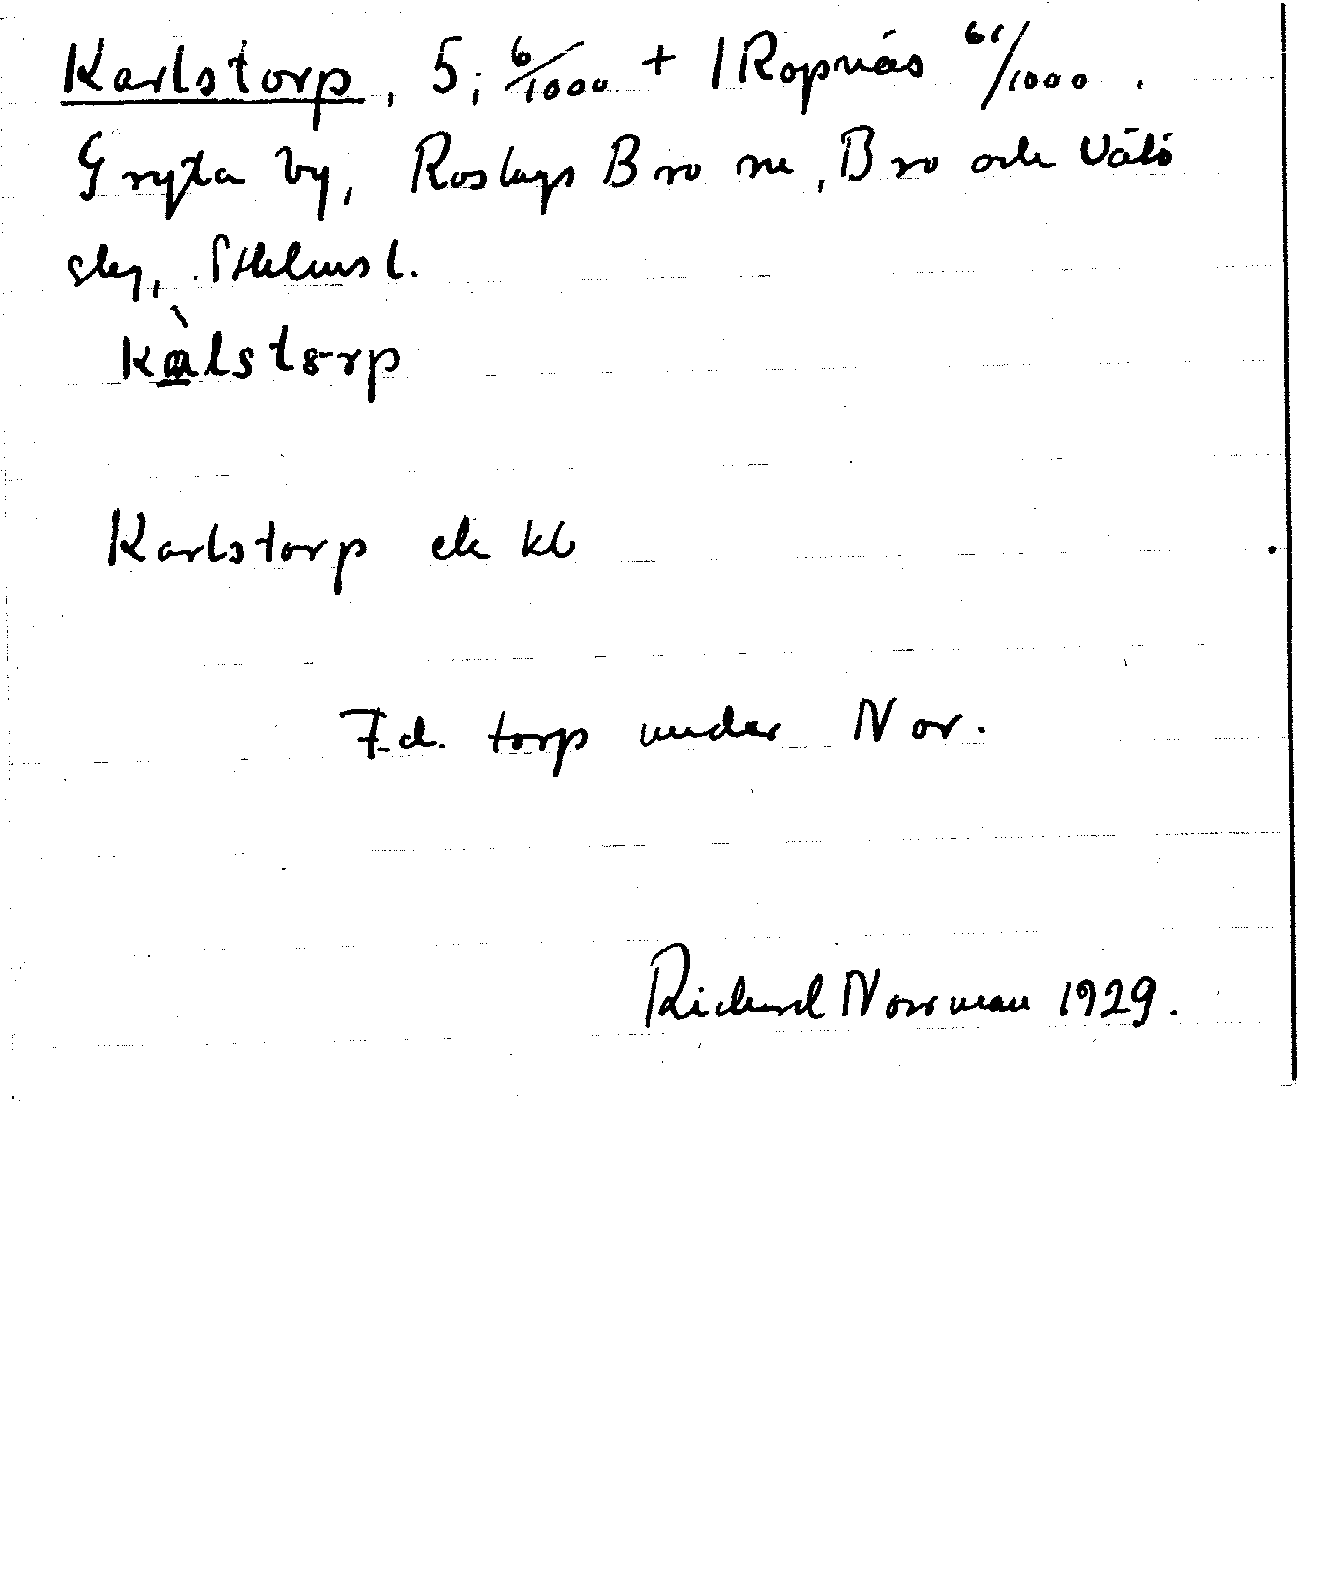 Karlstorp, 5; 6/1000 + 1 Ropnäs 61/1000.
Gryta by, Roslags Bro sn, Bro och Vätö
slg, Sthlms l.
kàlstorp
Karlstorp ek kb
F.d. torp under Nor.
Richard Norrman 1929.